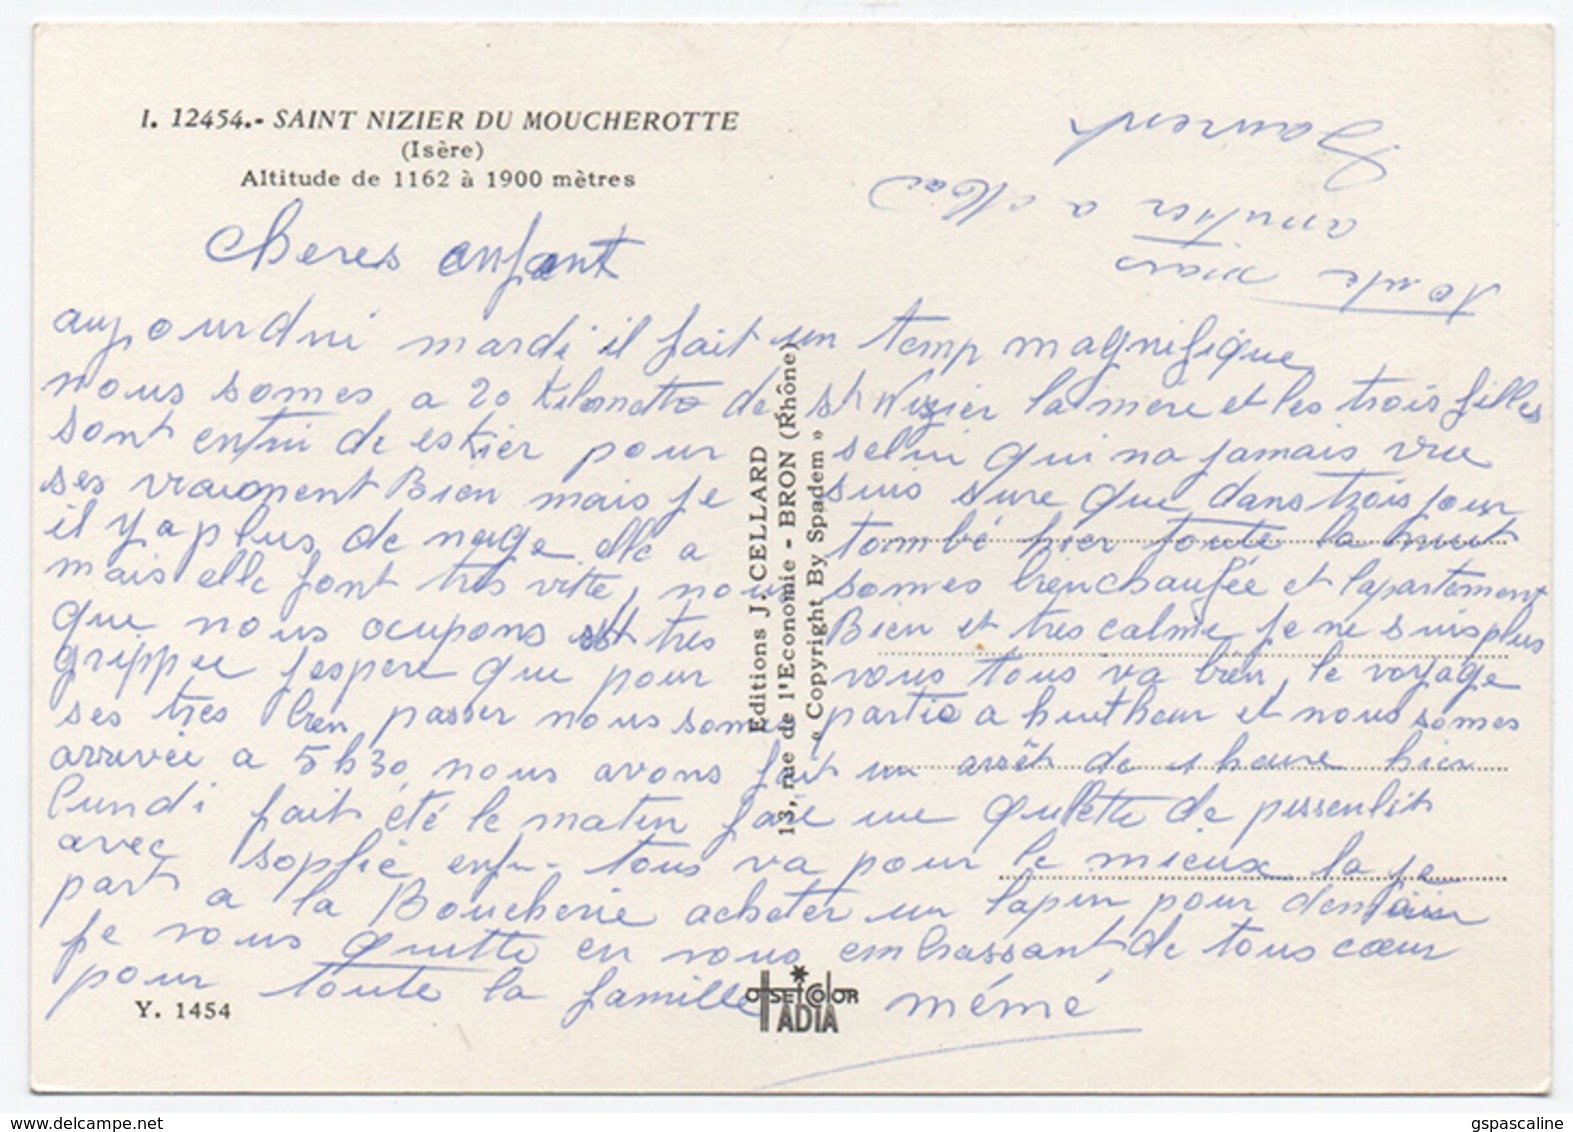 I. 12454.- SAINT NIZIER DU MOUCHEROTTE
(Isère)
Altitude de 1162 à 1900 mètres
cheres enfant
aujourdui mardi il fait un temp magnifique
nous somes a 20 kilometre de st Nizier la mère et les trois filles
sont entrui de eskier pour selui qui na jamais vue
ses vraiment Bien mais je suis sure que dans trois jour
il y a plus de neige elle a tombé hier toute la nuit
mais elle font tres vitte, nous somes bien chaufée et lapartement
que nous ocupons est tres Bien et tres calme je ne suis plus
grippee jespere que pour vous tous va bien, le voyage
ses tres bien passer nous somes partie a huit heur et nous somes
arrivée a 5h30 nous avons fait un arrêt de 1 heure hier
lundi fait été le matin faire une qulette de pissenlit
avec sophie enfin tous va pour le mieux la je
part a la Boucherie acheter un lapin pour demain
je vous quitte en vous embrassant de tous cœur
pour toute la famille mémé
route mais
arrutier a
Laurent
Editions J. CELLARD
13, rue de l'Economie - BRON (Rhône)
« Copyright By Spadem »
Y. 1454
OFFSET COLOR
ADIA
delcampe.net
gspascaline